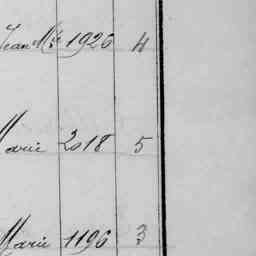 Jean Mie 1926 4
Marie 2018 5
Marie 1196 3